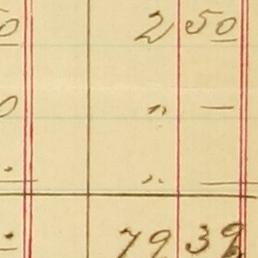 0 2 50
0 " —
. " —
. 79 39